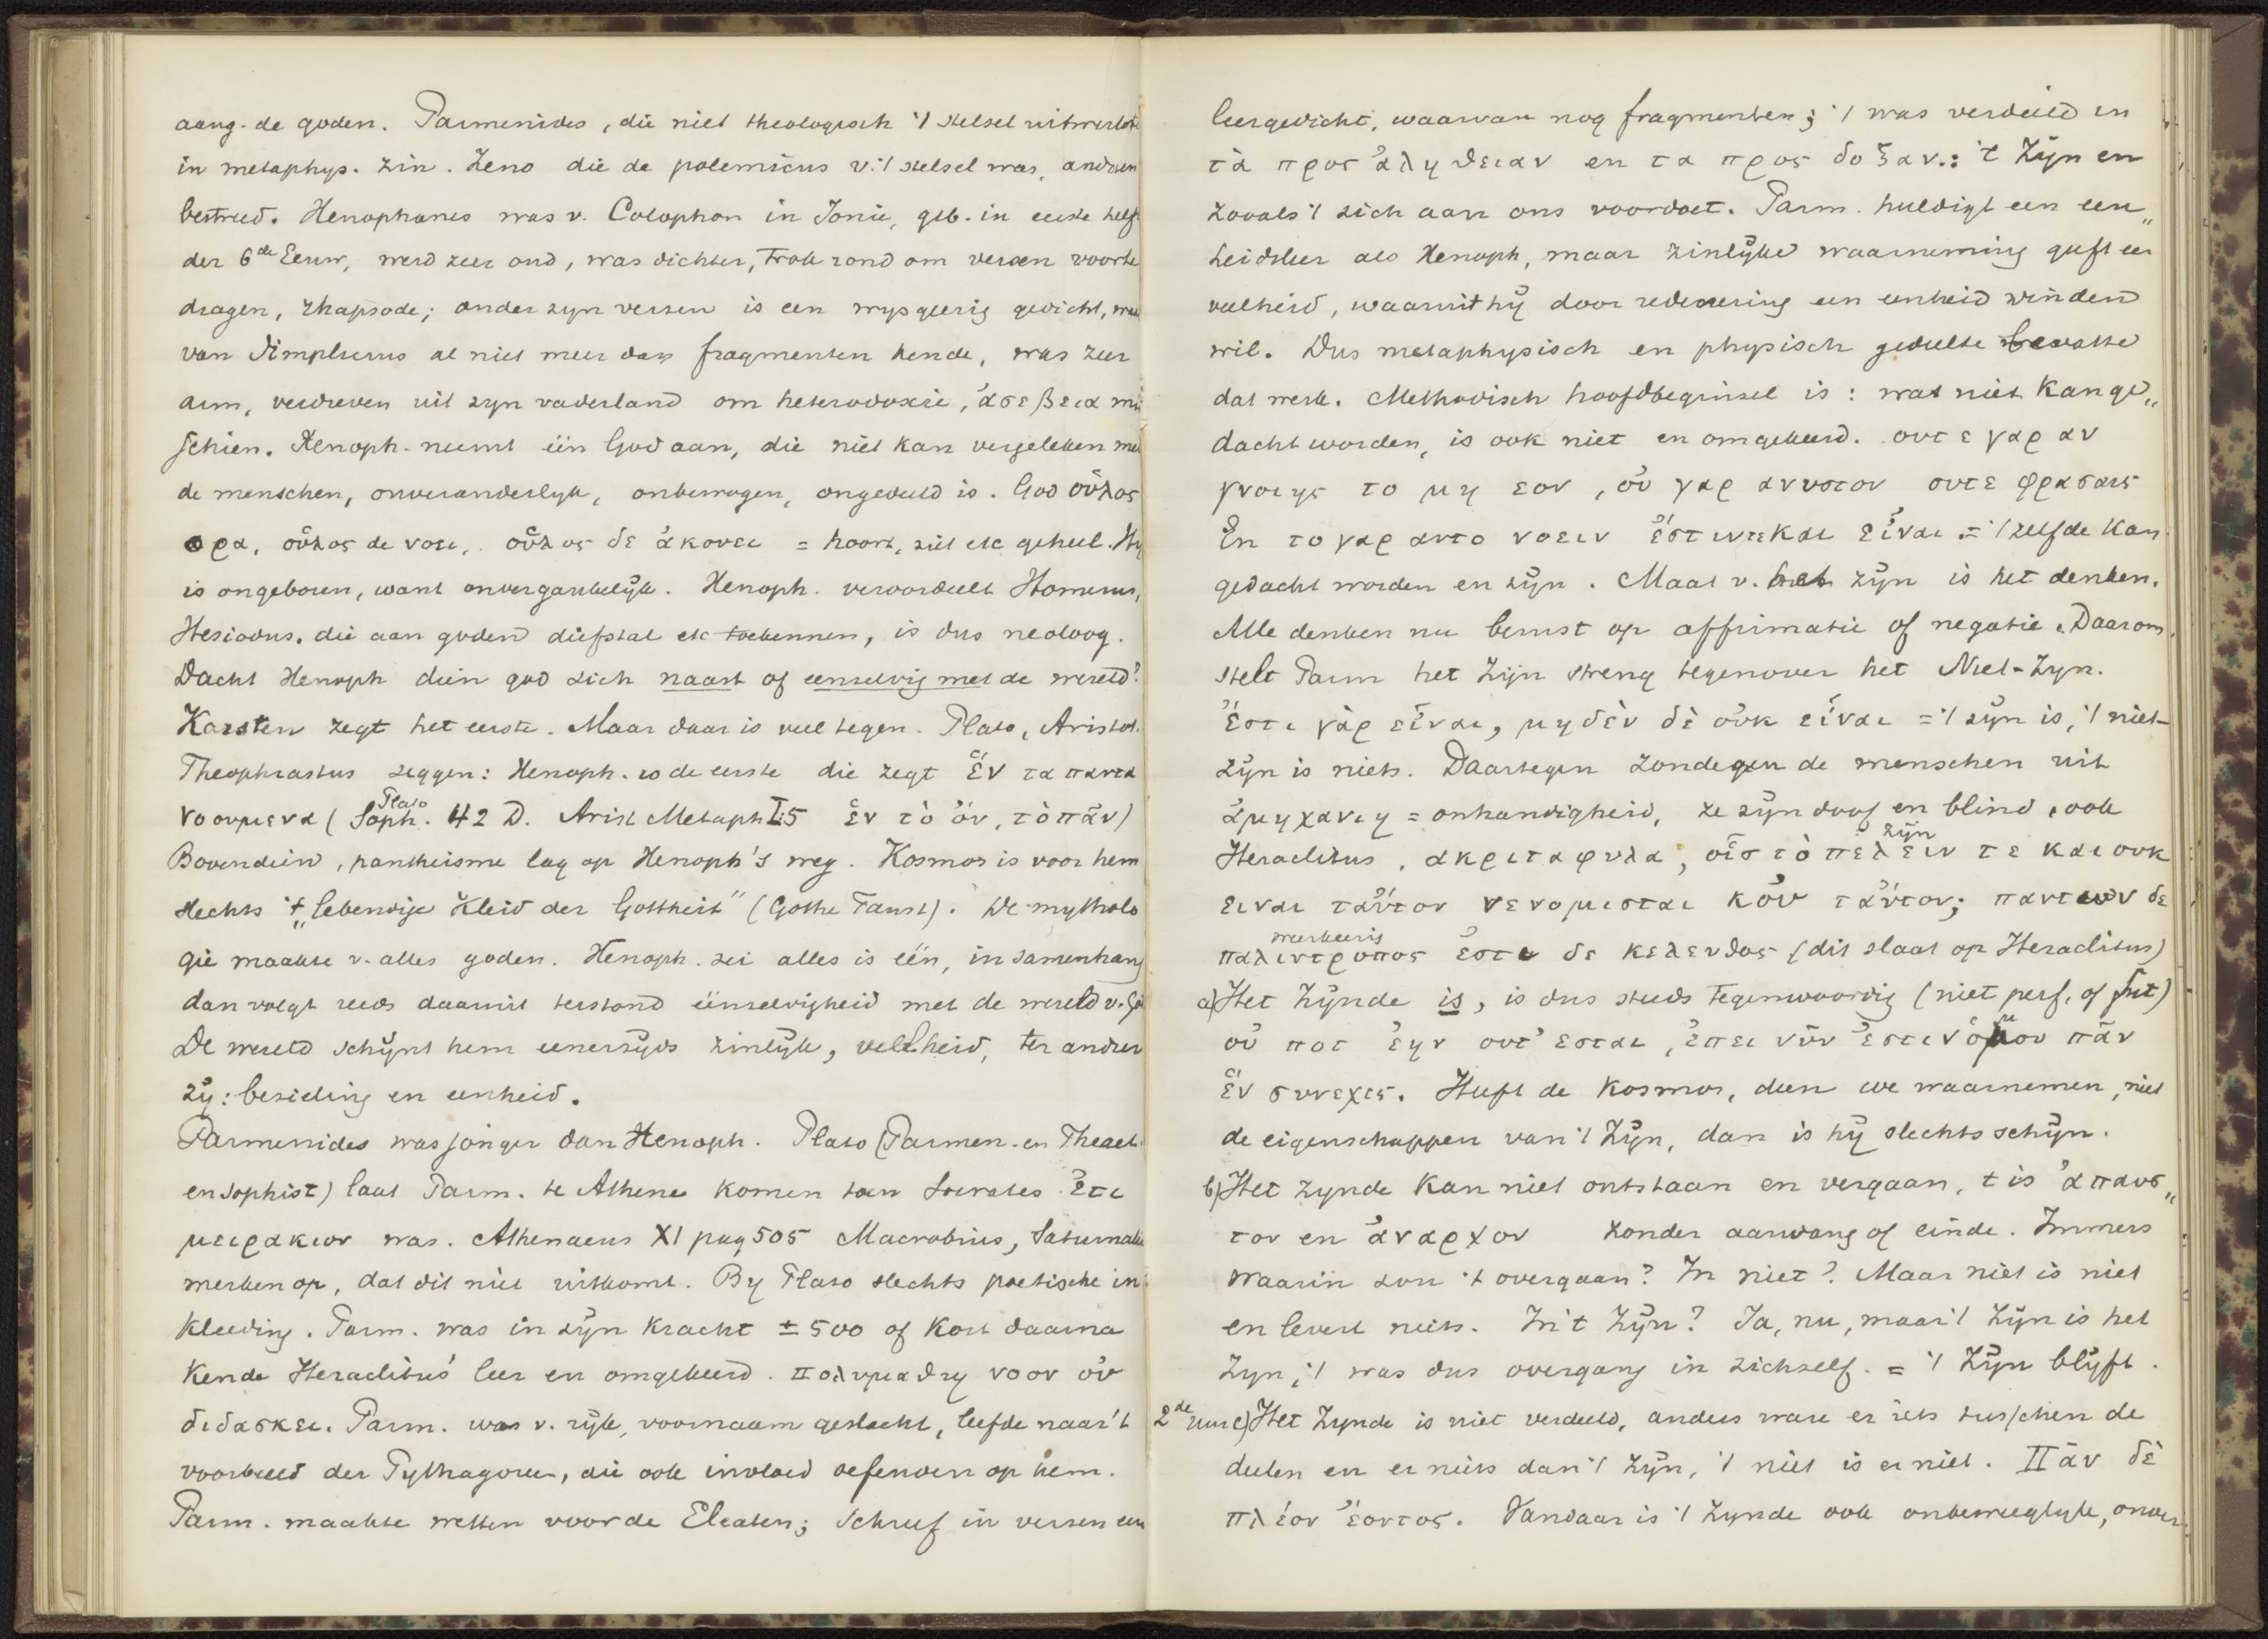 aang. de goden. Parmenides, die niet theologisch 't stelsel uitwerkte
in metaphys. zin. Zeno die de polemicus v. 't stelsel was, anderen
bestreed. Xenophanes was v. Colophon in Ionie, geb. in eerste helft
der 6de Eeuw, werd zeer oud, was dichter, trok rond om verzen voor te
dragen, rhapsode; onder zyn verzen is een wysgeerig gedicht, waar
van Simplicius al niet meer dan fragmenten kende, was zeer
arm, verdreven uit zyn vaderland om heterodoxie, ἀσεβεια mis
schien. Xenoph. neemt één God aan, die niet kan vergeleken met
de menschen, onveranderlyk, onbewogen, ongedeeld is. God οὖλος
ορα, οὖλος δε νοει, οὖλος δε ἀκουει = hoort, ziet etc geheel. Hy
is ongeboren, want onvergankelijk. Xenoph. veroordeelt Homerus,
Hesiodus, die aan goden diefstal etc toekennen, is dus neoloog.
Dacht Xenoph dien god zich naast of eenzelvig met de wereld?
Karsten zegt het eerste. Maar daar is veel tegen. Plato, Aristot.
Theophrastus zeggen: Xenoph. is de eerste die zegt ἕν τα παντα
νοουμενα (Plato Soph. 42 D. Arist Metaph I:5 ἑν τὸ ὄν, τὸ πᾶν)
Bovendien, pantheisme lag op Xenoph's weg. Kosmos is voor hem
slechts 't „lebendige Kleid der Gottheit" (Gothe Faust). De mytholo
gie maakte v. alles goden. Xenoph. zei alles is één, in samenhang
dan volgt reeds daaruit terstond éénzelvigheid met de wereld v. God
De wereld schijnt hem eenerzijds zinlijk, veelheid, ter andere
zij: bezieling en eenheid.
Parmenides was jonger dan Xenoph. Plato (Parmen. en Theaet.
en Sophist) laat Parm. te Athene komen toen Socrates ἔτι
μειρακιον was. Athenaeus XI pag 505 Macrobius, Saturnalia
merken op, dat dit niet uitkomt. By Plato slechts poetische in
kleeding. Parm. was in zijn kracht ± 500 of kort daarna
kende Heraclitus' leer en omgekeerd. πολυμαθιη νοον οὐ
διδασκει. Parm. was v. rijk, voornaam geslacht, leefde naar 't
voorbeeld der Pythagoreer, die ook invloed oefenden op hem.
Parm. maakte wetten voor de Eleaten; schreef in verzen een
leergedicht, waarvan nog fragmenten; 't was verdeeld in
τὰ προς ἀληθειαν en τα προς δοξαν.: 't Zijn en
zooals 't zich aan ons voordoet. Parm. huldigt een een„
heidsleer als Xenoph, maar zinlijke waarneming geeft een
veelheid, waaruit hij door redeneering een eenheid vinden
wil. Dus metaphysisch en physisch gedeelte bevatte
dat werk. Methodisch hoofdbeginsel is: wat niet kan ge„
dacht worden, is ook niet en omgekeerd. ουτε γαρ αν
γνοιης το μη εον, οὐ γαρ ανυστον ουτε φρασαις
En το γαρ αυτο νοειν ἐστιν τε και εἶναι. = 't zelfde kan
gedacht worden en zijn. Maat v. het zijn is het denken.
Alle denken nu berust op affirmatie of negatie. Daarom
stelt Parm het Zijn streng tegenover het Niet-Zyn.
Ἔστι γὰρ εἶναι, μηδὲν δὲ οὐκ εἶναι = 't zijn is, 't niet-
zijn is niets. Daartegen zondigen de menschen uit
ἀμηχανιη = onhandigheid, ze zijn doof en blind, ook
Heraclitus, ακριτα φυλα, οἷς τὸ πέλειν zijn τε και ουκ
ειναι ταὐτον νενομισται κοὐ ταὐτον; παντων δε
παλιντροπος ἐστι δε κελευθος (dit slaat op Heraclitus)
a) Het Zijnde is, is dus steeds tegenwoordig (niet perf. of fut)
οὐ ποτ ἐην ουτ' εσται, ἐπει νῦν ἐστιν ὁμου πᾶν
ἕν συνεχες. Heeft de Kosmos, dien we waarnemen, niet
de eigenschappen van 't Zijn, dan is hij slechts schijn.
b) Het zynde kan niet ontstaan en vergaan, t is ἀπαυσ„
τον en ἀναρχον zonder aanvang of einde. Immers
waarin zou 't overgaan? In niet? Maar niet is niet
en levert niets. In 't Zijn? Ja, nu, maar 't Zijn is het
Zyn; 't was dus overgang in zichzelf. = 't Zijn blijft.
2de uur c) Het Zynde is niet verdeeld, anders ware er iets tusschen de
deelen en er niets dan 't Zijn, 't niet is er niet. Πᾶν δὲ
πλέον ἐόντος. Vandaar is 't Zynde ook onbeweeglyk, onver